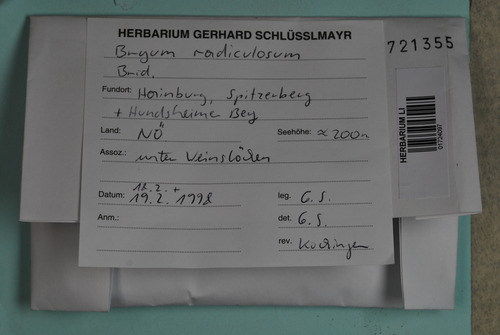 HERBARIUM GERHARD SCHLÜSSLMAYR
721355
Bryum radiculosum
Brid.
Fundort: Hainburg, Spitzerberg
+ Hundsheimer Berg
Land: NÖ Seehöhe: ≈ 200m
Assoz.: unter Weinstöcken
18.2. +
Datum: 19.2.1998 leg. G.S.
Anm.: det. G.S.
rev.
HERBARIUM LI